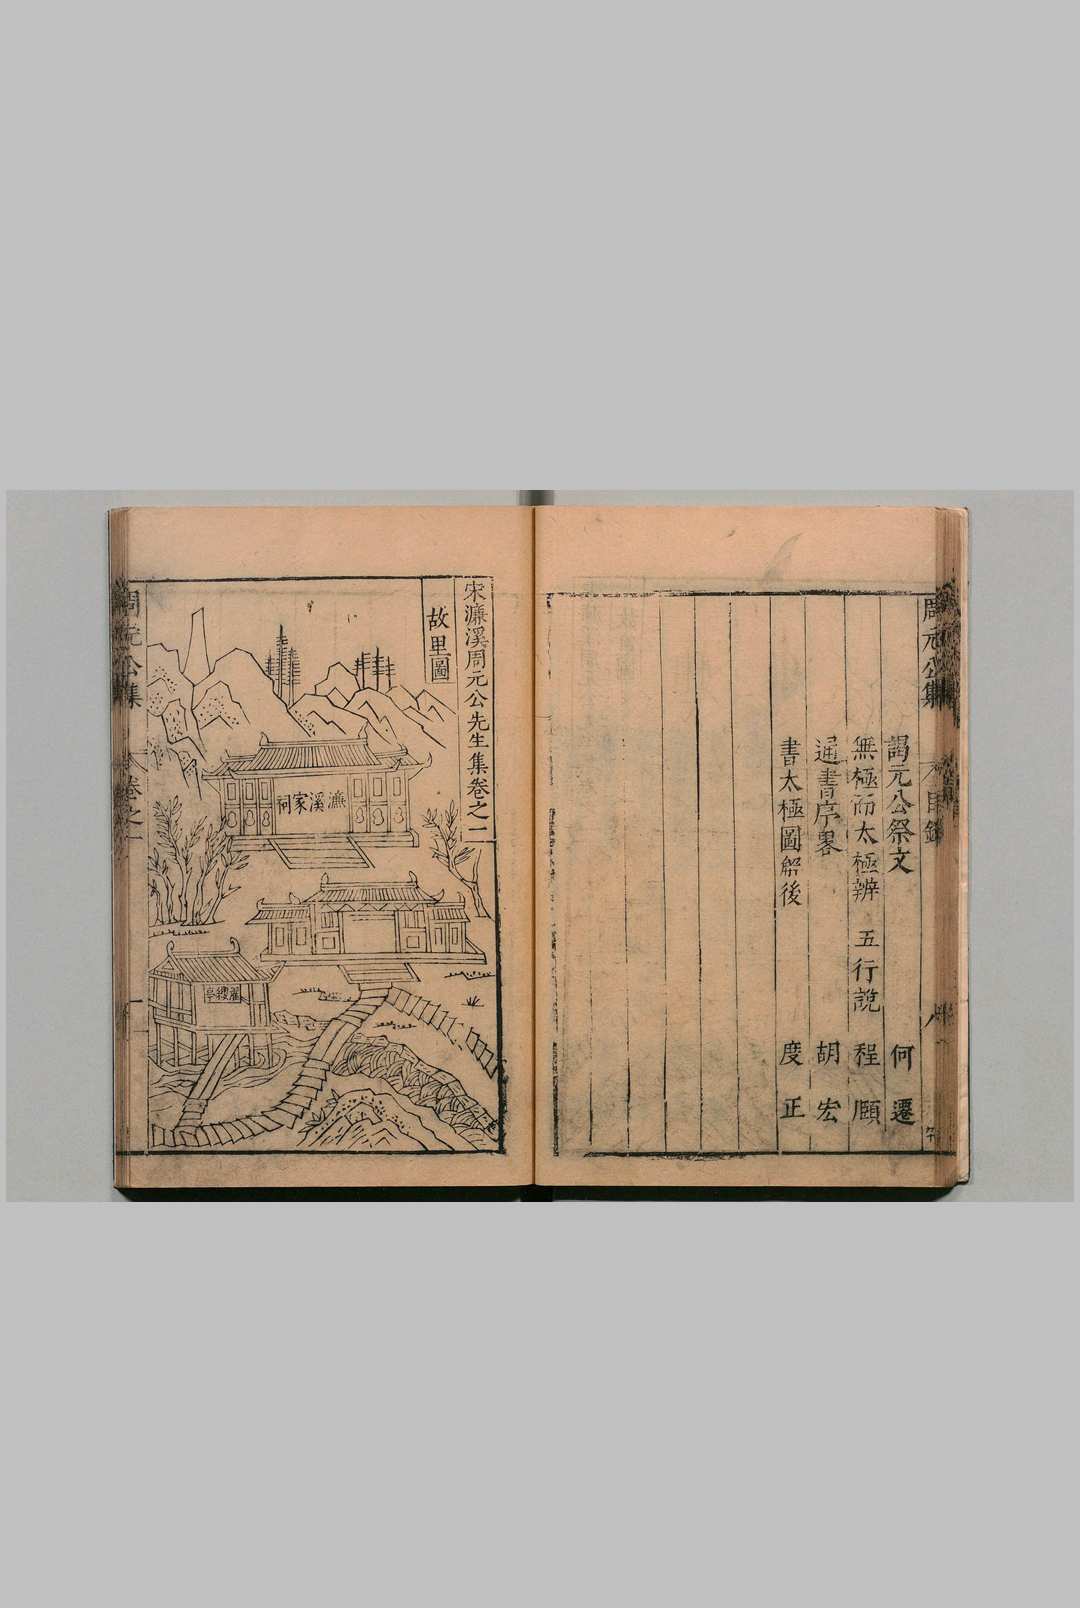 周元公集
目錄
八
謁元公祭文 何遷
無極而太極辨 五行說 程頤
通書序畧 胡宏
書太極圖解後 度正
宋濂溪周元公先生集卷之一
故里圖
濂溪家祠
濯纓亭
周元公集
卷之一
一